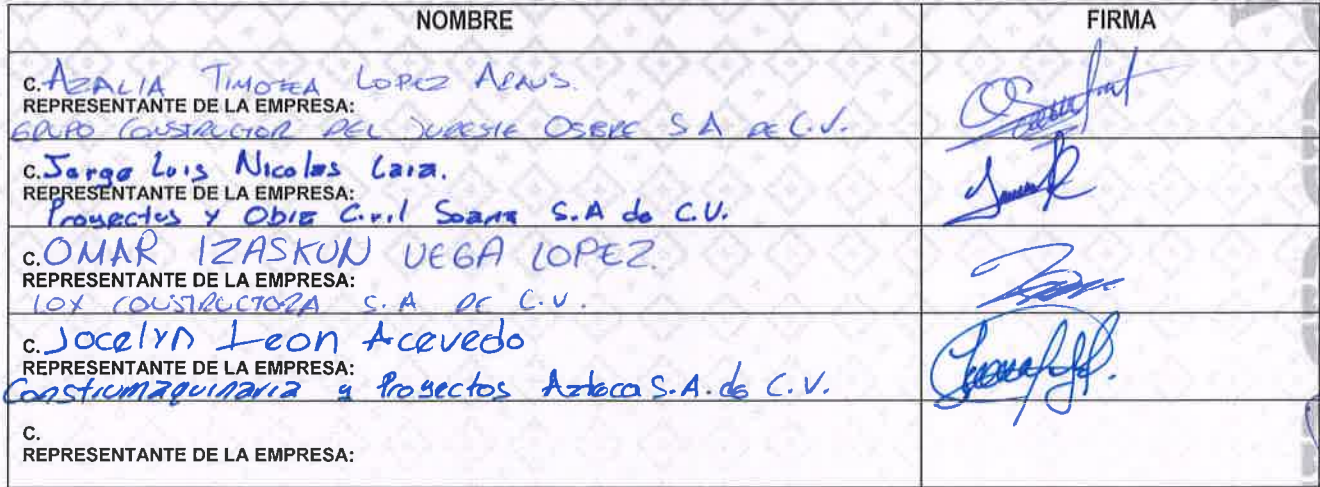 NOMBRE FIRMA
C. AZALIA TIMOTEA LOPEZ
REPRESENTANTE DE LA EMPRESA:
GRUPO CONSTRUCTOR DEL SURESTE OSERE S A DE C.V.
C. Jorge Luis Nicolas Lara.
REPRESENTANTE DE LA EMPRESA:
Proyectos y Obra Civil S.A de C.V.
C. OMAR IZASKUN VEGA LOPEZ.
REPRESENTANTE DE LA EMPRESA:
LOX CONSTRUCTORA S. A DE C.V.
C. Jocelyn Leon Acevedo
REPRESENTANTE DE LA EMPRESA:
Construmaquinaria y Proyectos Azteca S.A. de C.V.
C.
REPRESENTANTE DE LA EMPRESA: